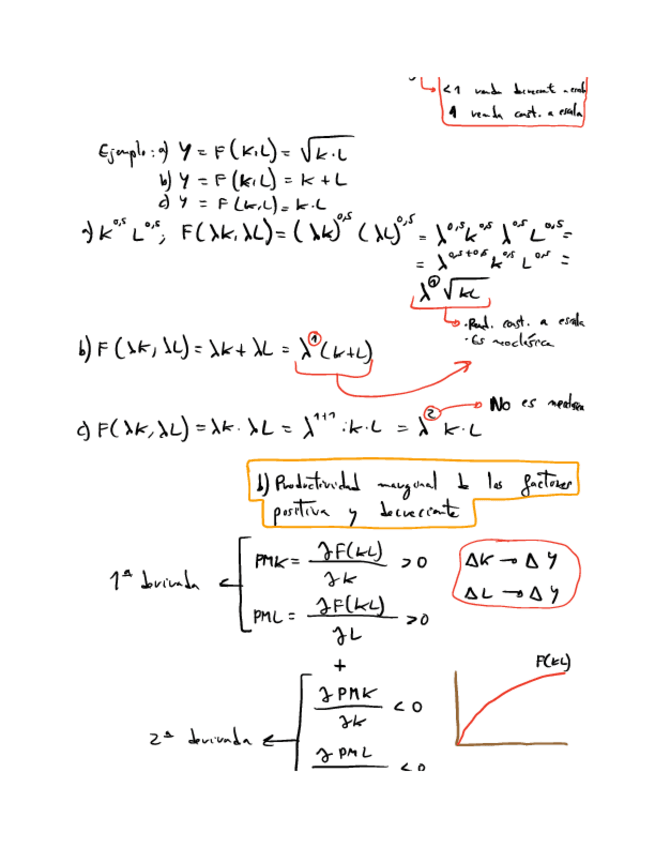 <1 rendim decreciente a escala
1 rendim const. a escala
Ejemplo: a) Y = F(K,L) = √K·L
b) Y = F(K,L) = K + L
c) Y = F(K,L) = K·L
a) K^0,5 L^0,5; F(λK, λL) = (λK)^0,5 (λL)^0,5 = λ^0,5 K^0,5 λ^0,5 L^0,5 =
= λ^0,5+0,5 K^0,5 L^0,5 =
λ^1 √KL
· Rend. const. a escala
· Es neoclásica
b) F(λK, λL) = λK + λL = λ^1 (K+L)
No es neoclásica
c) F(λK, λL) = λK · λL = λ^1+1 · K·L = λ^2 K·L
b) Productividad marginal de los factores
positiva y decreciente
1ª derivada
PMK = ∂F(KL)/∂K > 0
PML = ∂F(KL)/∂L > 0
ΔK → ΔY
ΔL → ΔY
+
F(KL)
2ª derivada
∂PMK/∂K < 0
∂PML < 0